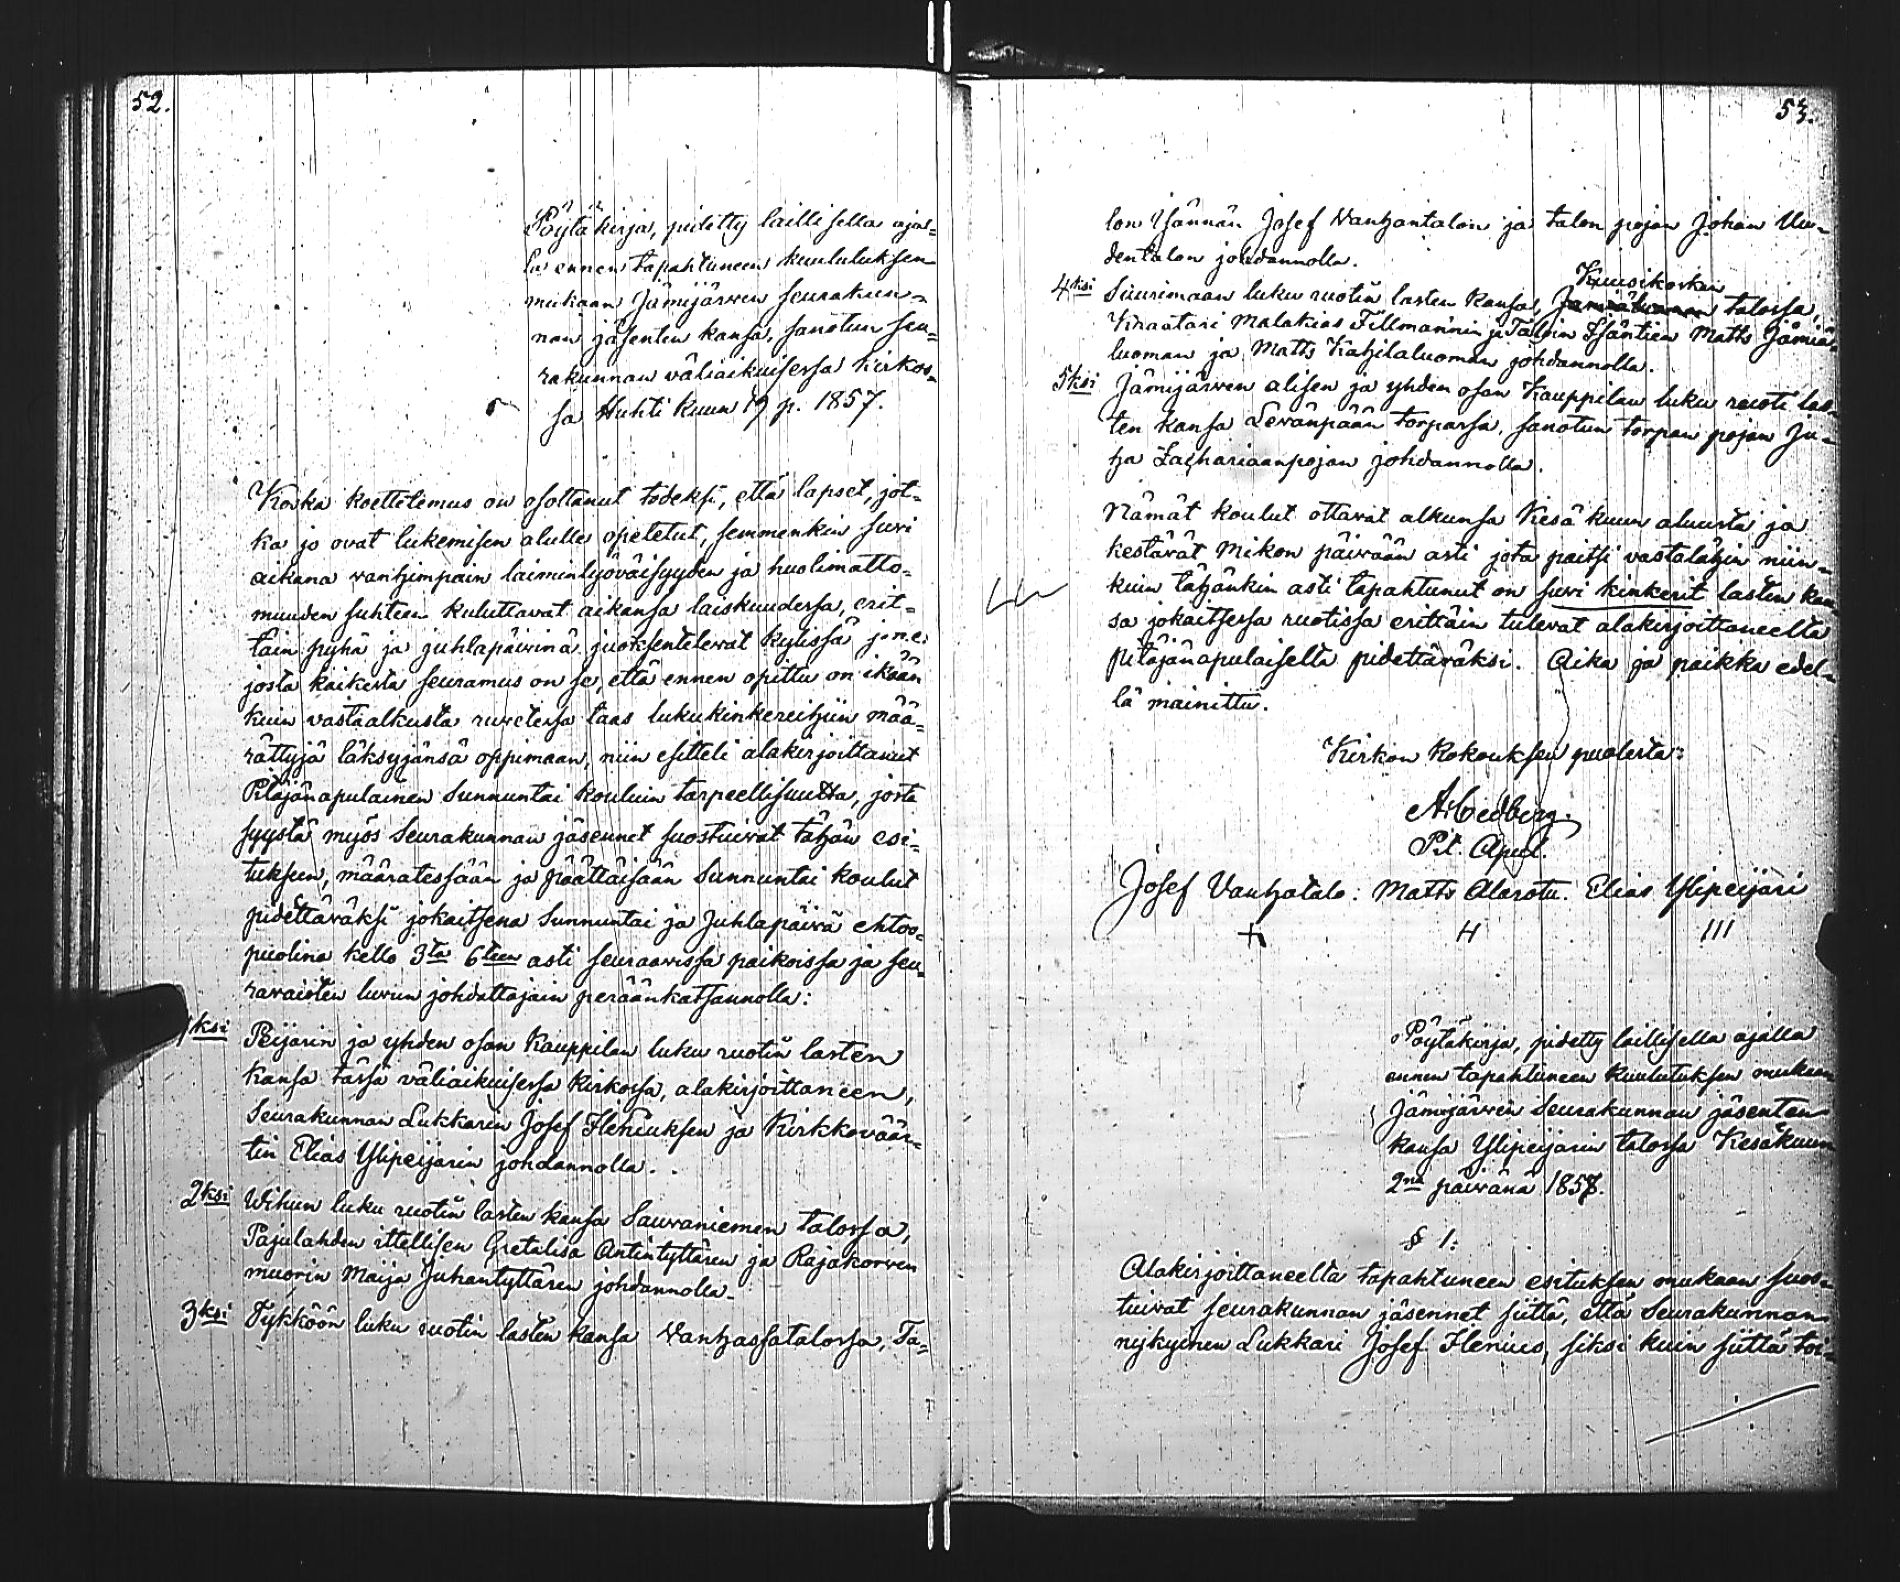 52.
Pöytäkirja, pidetty laillisella ajal=
la ennen tapahtuneen kuulutuksen
mukaan Jämijärven seurakun=
nan jäsenten kansa, sanotun seu=
rakunnan väliaikuisessa kirkos=
sa Huhti kuun 19 p. 1857.
Koska koettelemus on osottanut todeksi, että lapset, jot=
ka jo ovat lukemisen alulle opetetut, semmenkin suvi
aikana vanhimpain laiminlyöväisyyden ja huolimatto=
muuden suhteen kuluttavat aikansa laiskuudessa, erit=
täin pyhä ja juhlapäivinä juoksentelevat kylissä j.n.e.
josta kaikesta seuramus on se, että ennen opittu on ikään
kuin vasta alkusta ruvetessa taas lukukinkereihin mää=
rättyjä läksyjänsä oppimaan, niin esitteli alakirjoittanut
Pitäjänapulainen Sunnuntai kouluin tarpeellisuutta, josta
syystä myös Seurakunnan jäsennet suostuivat tähän esi=
tukseen, määrätessään ja päättäisään Sunnuntai koulut
pidettäväksi jokaitsena Sunnuntai ja Juhlapäivä ehtoo=
puolina kello 3ta 6teen asti seuraavissa paikoissa ja seu=
ravaisten luvun johdattajain peräänkatsannolla:
1ksi Peijarin ja yhden osan Kauppilan luku ruotin lasten
kansa tässä väliaikuisessa kirkossa, alakirjoittaneen,
Seurakunnan Lukkarin Josef Ileniuksen ja Kirkkoväär=
tin Elias Ylipeijarin johdannolla.
2ksi Wihun luku ruotin lasten kansa Sauvaniemen talossa,
Pajulahden ittellisen Gretalisa Antintyttären ja Rajakorven
muorin Maija Juhantyttären johdannolla.
3ksi Tykköön luku ruotin lasten kansa Vanhassatalossa, Ta=
53.
lon Isännän Josef Vanhantalon ja talon pojan Johan Uu=
dentalon johdannolla.
Kuusikosken
4ksi Suurimaan luku ruotin lasten kansa, Jämiäluoman talossa,
Kraatari Malakias Tillmannin ja Taloin Isäntien Matts Jämiä=
luoman ja Matts Kahilaluoman johdannolla.
5ksi Jämijärven alisen ja yhden osan Kauppilan luku ruoti las=
ten kansa Levänpään torpassa, sanotun torpan pojan Ju=
ha Zachariaanpojan johdannolla.
Nämät koulut ottavat alkunsa Kesä kuun alusta ja
kestävät Mikon päivään asti jota paitsi vastalähin niin=
kuin tähänkin asti tapahtunut on suvi kinkerit lasten kan
sa jokaitsessa ruotissa erittäin tulevat alakirjoittaneelta
Pitäjänapulaiselta pidettäväksi. Aika ja paikka edel=
lä mainittu.
Kirkon kokouksen puolesta:
A. Cedberg.
Pit. Apul.
Josef Vanhatalo: Matts Alarotu. Elias Ylipeijari
H III
Pöytäkirja, pidetty laillisella ajalla
ennen tapahtuneen kuulutuksen mukaan
Jämijärven Seurakunnan jäsenten
kansa Ylipeijarin talossa Kesäkuun
2na päivänä 1857.
§ 1:
Alakirjoittaneelta tapahtuneen esituksen mukaan suos=
tuivat seurakunnan jäsennet siitä, että Seurakunnan
nykyinen Lukkari Josef Ilenius, siksi kuin siitä toi=